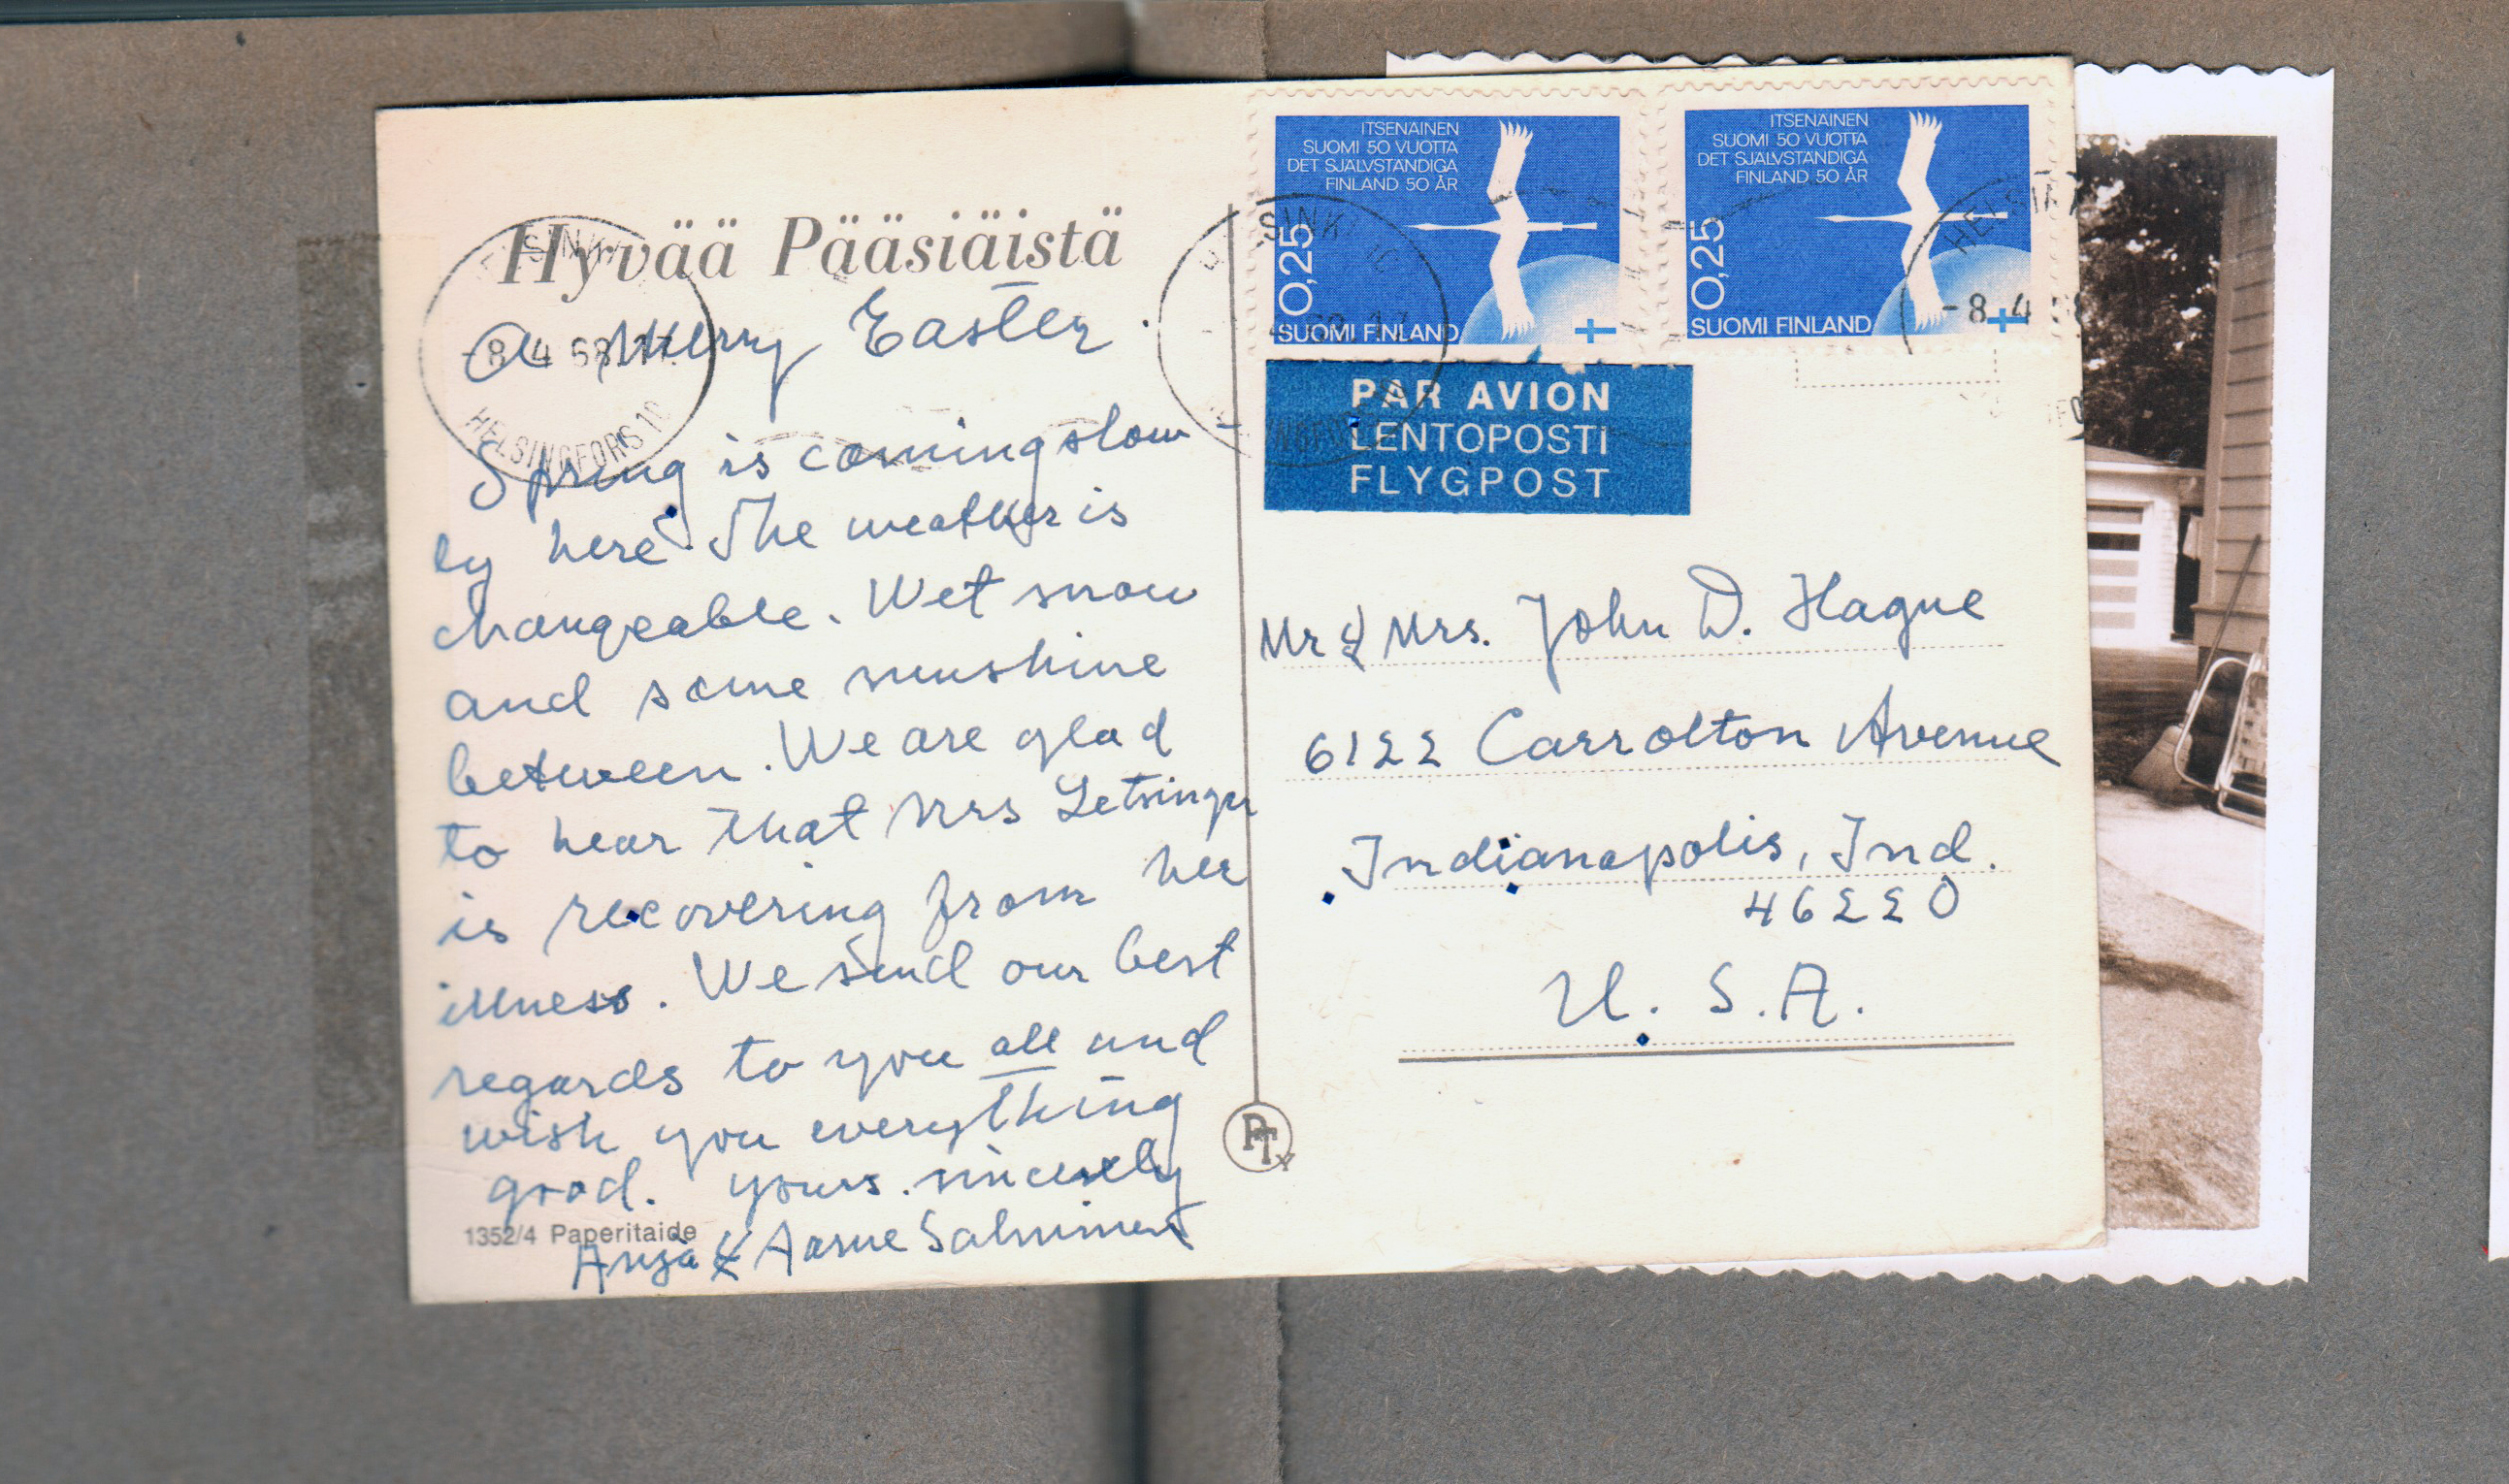 Hyvää Pääsiäistä
A Merry Easter.
Spring is coming slow-
ly here. The weather is
changeable. Wet snow
and some sunshine
between. We are glad
to hear that Mrs Letsinger
is recovering from her
illness. We send our best
regards to you all and
wish you everything
good. Yours sincerely
Anja & Aarne Salminen
1352/4 Paperitaide
-8.-4 68.17
HELSINGFORS 10
ITSENÄINEN
SUOMI 50 VUOTTA
DET SJÄLVSTÄNDIGA
FINLAND 50 ÅR
0,25
SUOMI FINLAND
ITSENÄINEN
SUOMI 50 VUOTTA
DET SJÄLVSTÄNDIGA
FINLAND 50 ÅR
0,25
SUOMI FINLAND
-8.-4 68
PAR AVION
LENTOPOSTI
FLYGPOST
Mr & Mrs. John D. Hague
6122 Carrolton Avenue
Indianapolis, Ind.
46220
U.S.A.
PTy